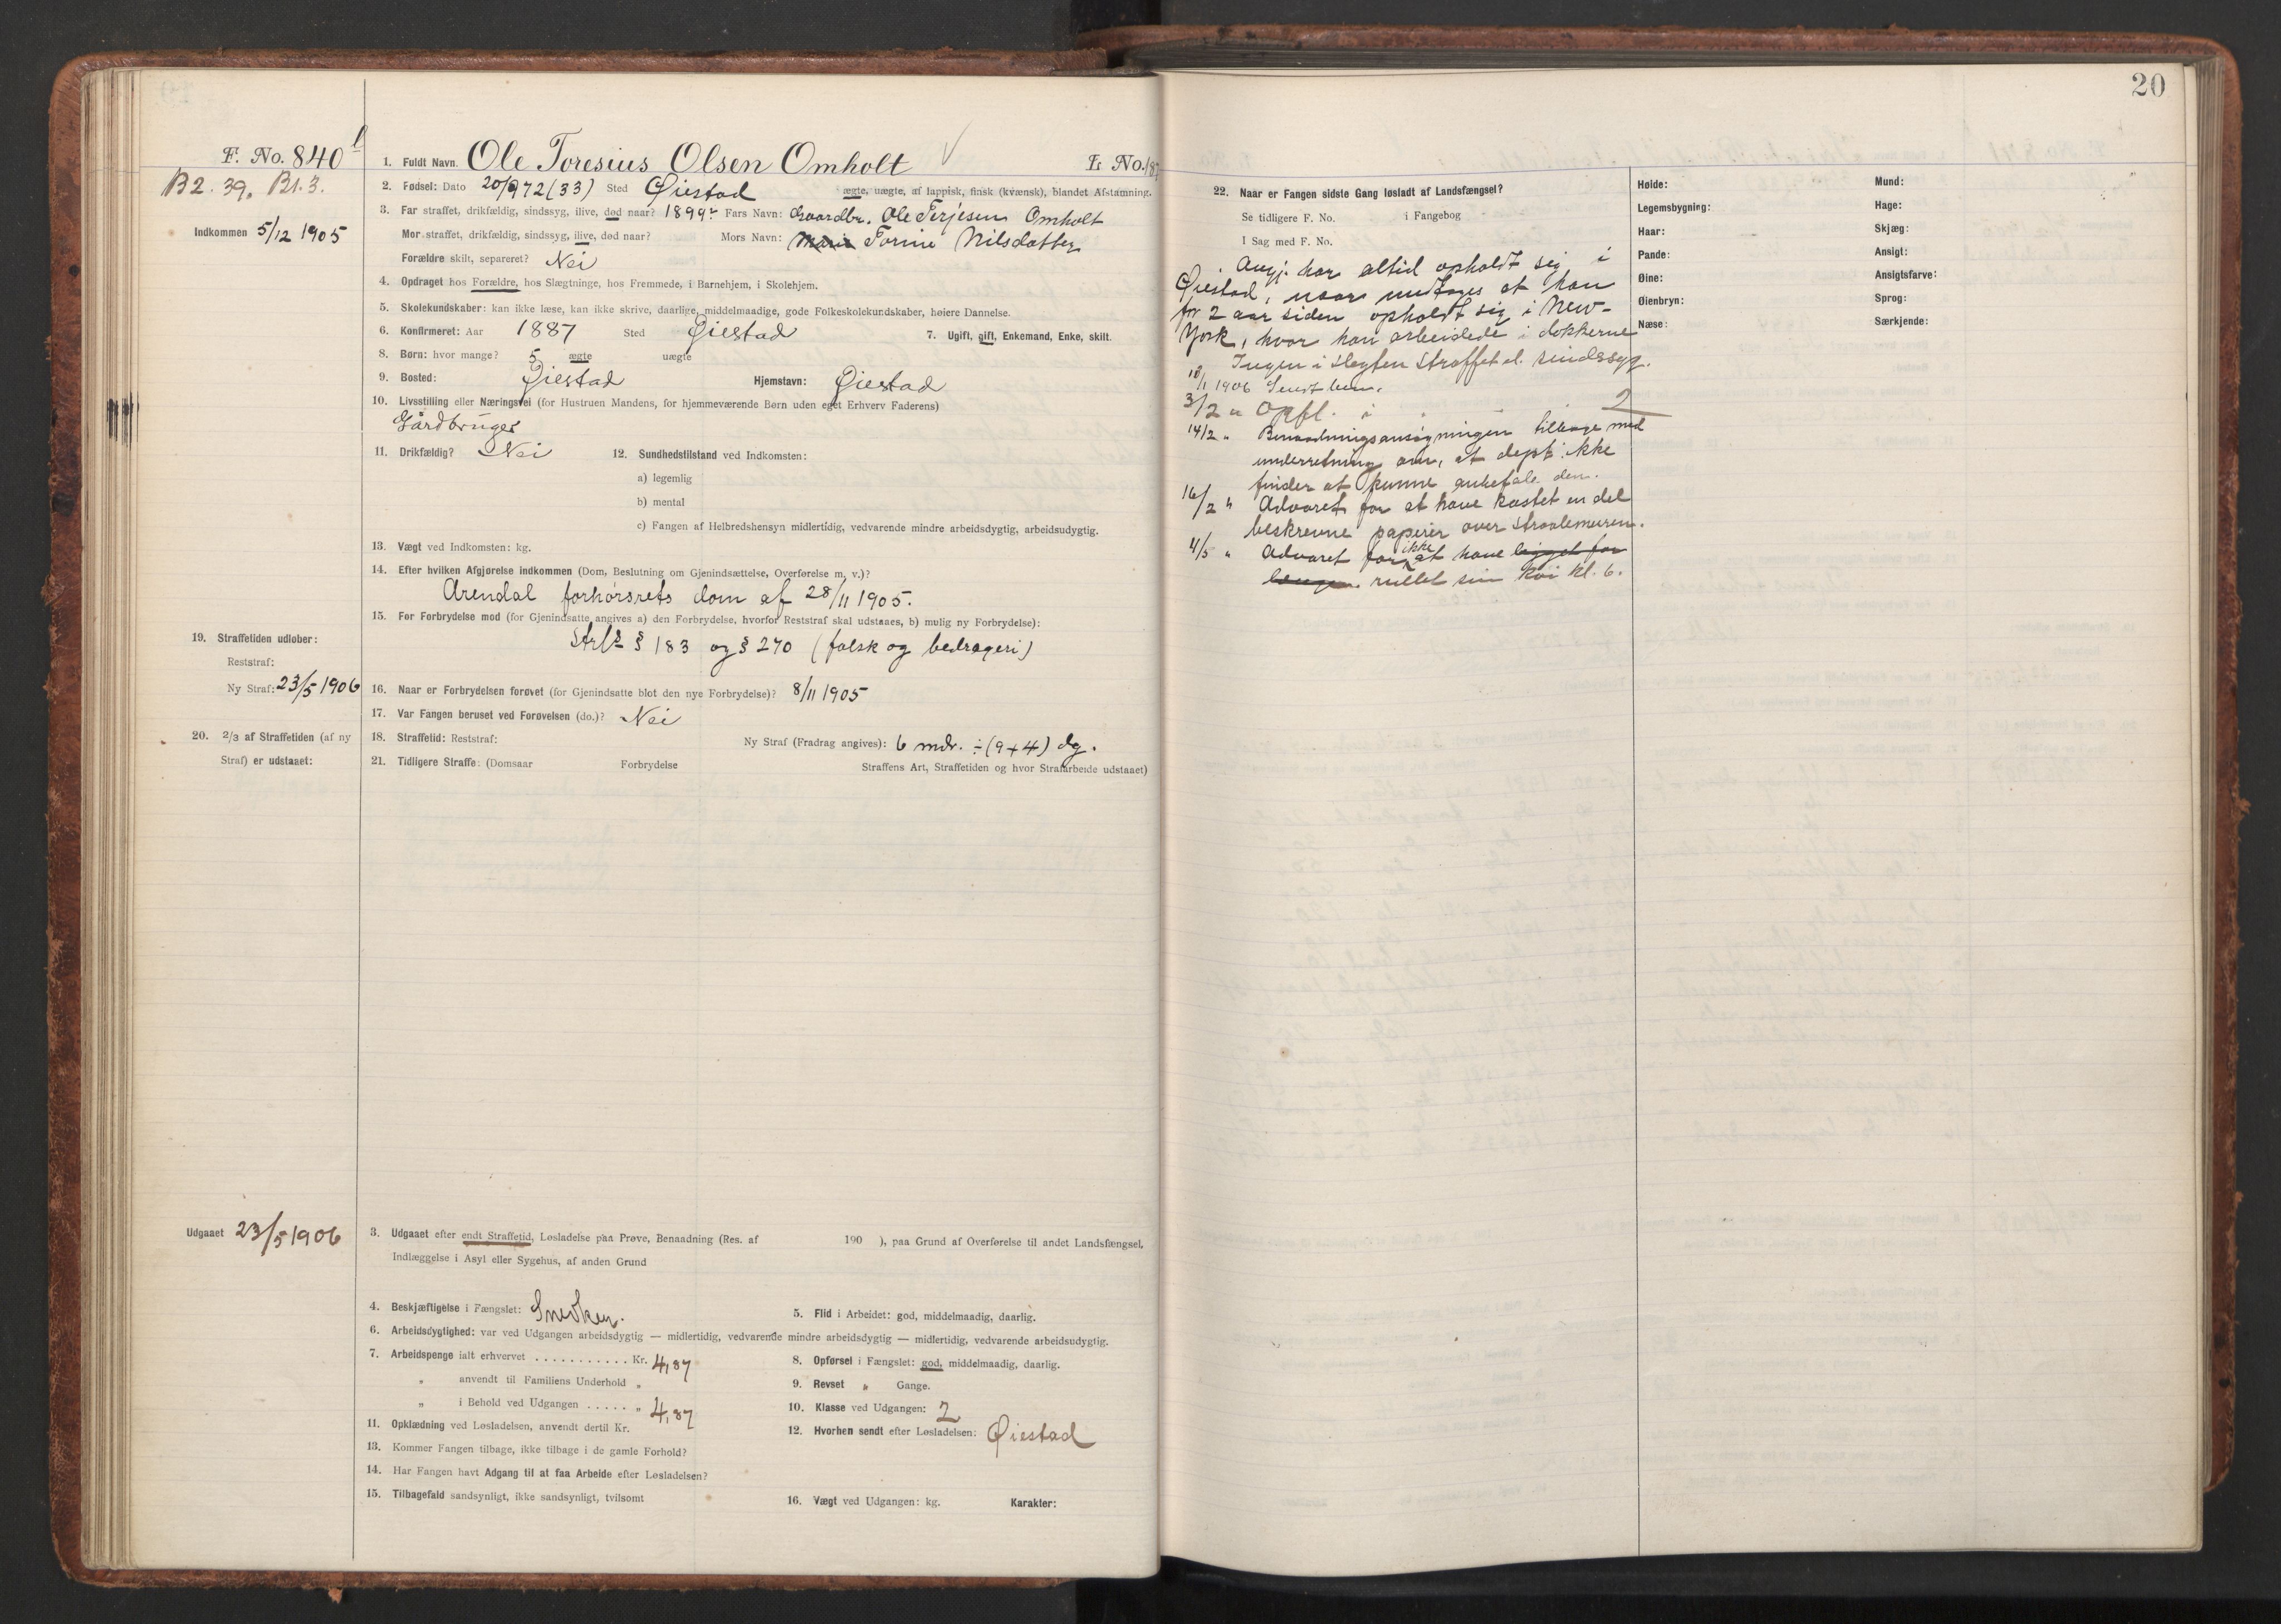 F. No. 840
B 2. 39. Bl. 3.
Indkommen 5/12 1905
1. Fuldt Navn. Ole Toresius Olsen Omholt
L. No.
2. Fødsel: Dato 20/9 72 (33) Sted Øiestad ægte, uægte, af lappisk, finsk (kvænsk), blandet Afstamning.
3. Far straffet, drikfældig, sindssyg, ilive, død naar? 1899 Fars Navn: Gaardbr. Ole Terjesen Omholt
Mor straffet, drikfældig, sindssyg, ilive, død naar? Mors Navn: Marie Torine Nilsdatter
Forældre skilt, separeret? Nei
4. Opdraget hos Forældre, hos Slægtninge, hos Fremmede, i Barnehjem, i Skolehjem.
5. Skolekundskaber: kan ikke læse, kan ikke skrive, daarlige, middelmaadige, gode Folkeskolekundskaber, høiere Dannelse.
6. Konfirmeret: Aar 1887 Sted Øiestad 7. Ugift, gift, Enkemand, Enke, skilt.
8. Børn: hvor mange? 5 ægte uægte
9. Bosted: Øiestad Hjemstavn: Øiestad
10. Livsstilling eller Næringsvei (for Hustruen Mandens, for hjemmeværende Børn uden eget Erhverv Faderens)
Gårdbruger
11. Drikfældig? Nei 12. Sundhedstilstand ved Indkomsten:
a) legemlig
b) mental
c) Fangen af Helbredshensyn midlertidig, vedvarende mindre arbeidsdygtig, arbeidsudygtig.
13. Vægt ved Indkomsten: kg.
14. Efter hvilken Afgjørelse indkommen (Dom, Beslutning om Gjenindsættelse, Overførelse m. v.)?
Arendal forhørsrets dom af 28/11 1905.
15. For Forbrydelse mod (for Gjenindsatte angives a) den Forbrydelse, hvorfor Reststraf skal udstaaes, b) mulig ny Forbrydelse):
Strl § 183 og § 270 (falsk og bedrageri)
19. Straffetiden udløber:
Reststraf:
Ny Straf: 23/5 1906
16. Naar er Forbrydelsen forøvet (for Gjenindsatte blot den nye Forbrydelse)? 8/11 1905
17. Var Fangen beruset ved Forøvelsen (do.)? Nei
20. 2/3 af Straffetiden (af ny
Straf) er udstaaet:
18. Straffetid: Reststraf: Ny Straf (Fradrag angives): 6 mdr. ÷ (9+4) dg.
21. Tidligere Straffe: (Domsaar Forbrydelse Straffens Art, Straffetiden og hvor Strafarbeide udstaaet)
Udgaaet 23/5 1906
3. Udgaaet efter endt Straffetid, Løsladelse paa Prøve, Benaadning (Res. af 190 ), paa Grund af Overførelse til andet Landsfængsel,
Indlæggelse i Asyl eller Sygehus, af anden Grund
4. Beskjæftigelse i Fængslet: Snedker.
5. Flid i Arbeidet: god, middelmaadig, daarlig.
6. Arbeidsdygtighed: var ved Udgangen arbeidsdygtig — midlertidig, vedvarende mindre arbeidsdygtig — midlertidig, vedvarende arbeidsudygtig.
7. Arbeidspenge ialt erhvervet . . . . . . . . . . . Kr. 4,87
8. Opførsel i Fængslet: god, middelmaadig, daarlig.
„ anvendt til Familiens Underhold „
9. Revset „ Gange.
„ i Behold ved Udgangen . . . . . „ 4,87
10. Klasse ved Udgangen: 2
11. Opklædning ved Løsladelsen, anvendt dertil Kr.
12. Hvorhen sendt efter Løsladelsen: Øiestad
13. Kommer Fangen tilbage, ikke tilbage i de gamle Forhold?
14. Har Fangen havt Adgang til at faa Arbeide efter Løsladelsen?
15. Tilbagefald sandsynligt, ikke sandsynligt, tvilsomt
16. Vægt ved Udgangen: kg. Karakter:
20
22. Naar er Fangen sidste Gang løsladt af Landsfængsel?
Se tidligere F. No. i Fangebog
I Sag med F. No.
Angj. har altid opholdt sig i
Øiestad, naar undtages at han
for 2 aar siden opholdt sig i New-
York, hvor han arbeidede i dokkerne
Ingen i slegten straffet el. sindssyg.
1906
3/2 " Opfl. i 2
14/2 " Benaadningsansøgningen tilbage med
underretning om, at dept. ikke
finder at kunne anbefale den.
16/2 " Advaret for at have kastet en del
beskrevne papirer over straalemuren.
4/5 " Advaret for ikke at have ligget for
længe rullet sin køi kl. 6.
Høide:
Legemsbygning:
Haar:
Pande:
Øine:
Øienbryn:
Næse:
Mund:
Hage:
Skjæg:
Ansigt:
Ansigtsfarve:
Sprog:
Særkjende: